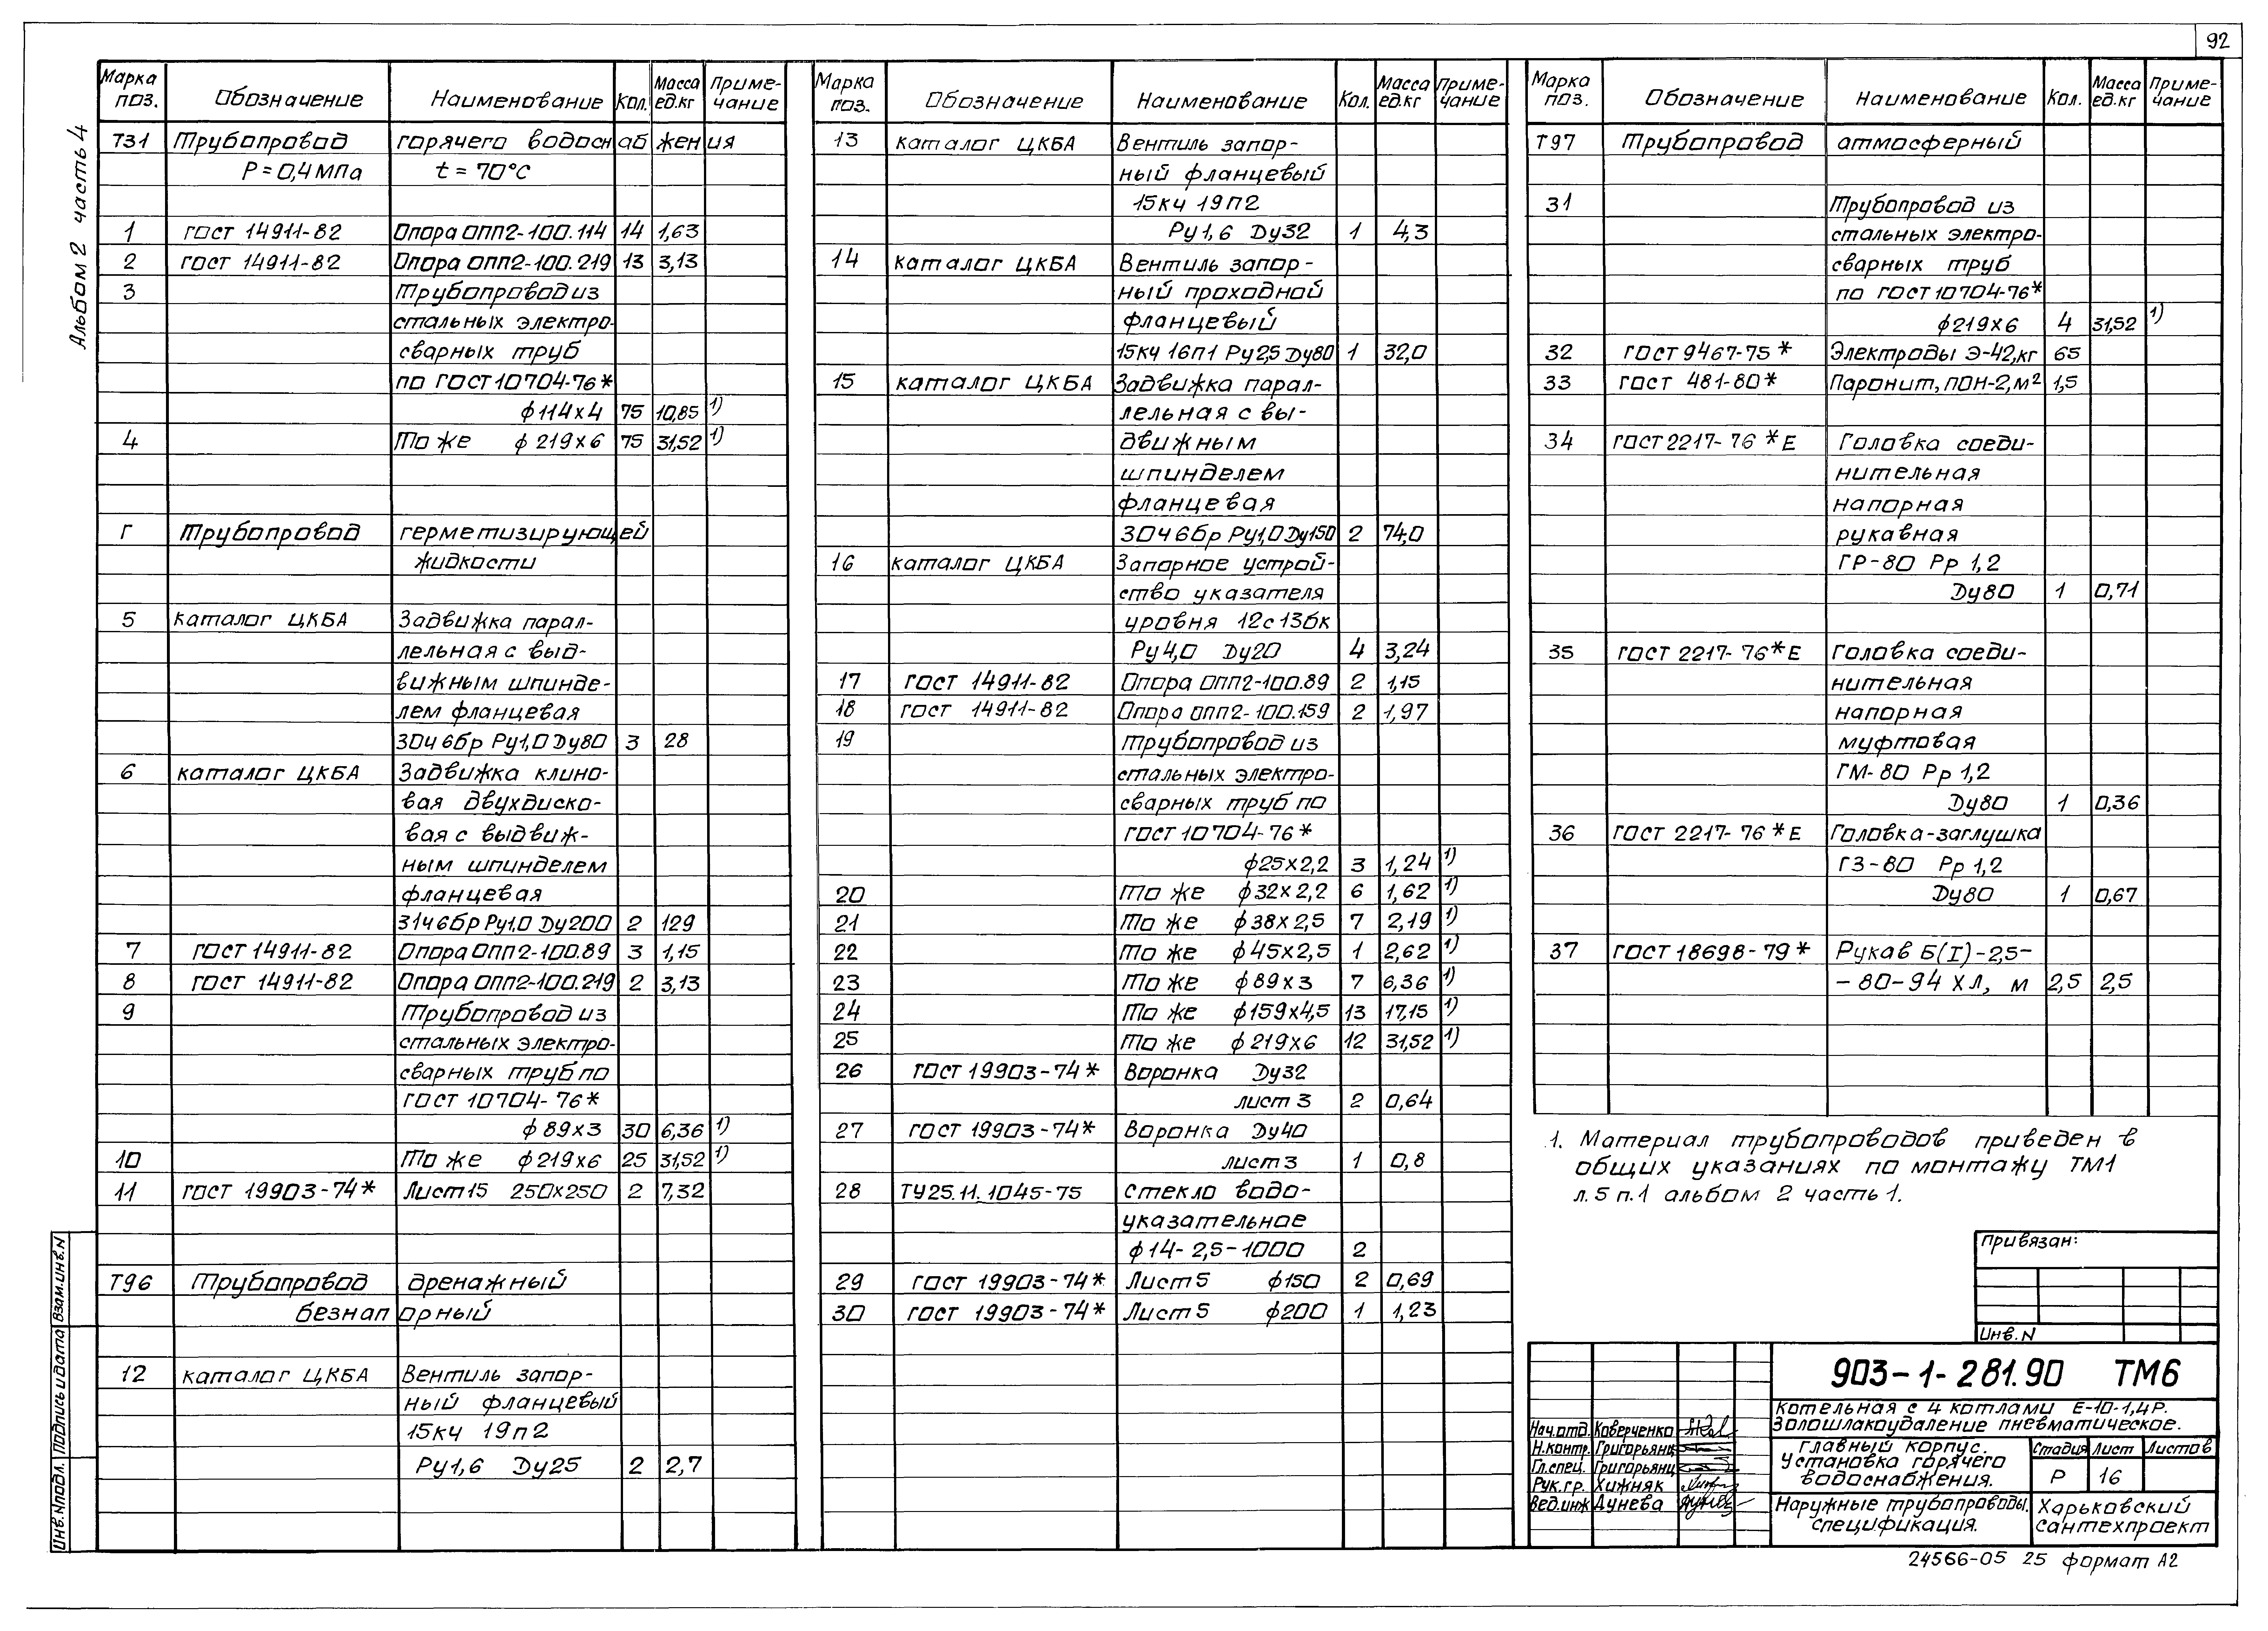 92
Альбом 2 часть 4
Марка поз. Обозначение Наименование Кол. Масса ед.кг Приме-чание
Т31 Трубопровод горячего водоснабжения
Р=0,4МПа t=70°С
1 ГОСТ 14911-82 Опора ОПП2-100.114 14 1,63
2 ГОСТ 14911-82 Опора ОПП2-100.219 13 3,13
3 Трубопровод из
стальных электро-
сварных труб
по ГОСТ 10704-76*
ф114х4 75 10,85 1)
4 То же ф219х6 75 31,52 1)
Г Трубопровод герметизирующей
жидкости
5 каталог ЦКБА Задвижка парал-
лельная с выд-
вижным шпинде-
лем фланцевая
30ч6бр Ру1,0 Ду80 3 28
6 каталог ЦКБА Задвижка клино-
вая двухдиско-
вая с выдвиж-
ным шпинделем
фланцевая
31ч6бр Ру1,0 Ду200 2 129
7 ГОСТ 14911-82 Опора ОПП2-100.89 3 1,15
8 ГОСТ 14911-82 Опора ОПП2-100.219 2 3,13
9 Трубопровод из
стальных электро-
сварных труб по
ГОСТ 10704-76*
ф89х3 30 6,36 1)
10 То же ф219х6 25 31,52 1)
11 ГОСТ 19903-74* Лист15 250х250 2 7,32
Т96 Трубопровод дренажный
безнапорный
12 каталог ЦКБА Вентиль запор-
ный фланцевый
15кч 19п2
Ру1,6 Ду25 2 2,7
Марка поз. Обозначение Наименование Кол. Масса ед.кг Приме-чание
13 каталог ЦКБА Вентиль запор-
ный фланцевый
15кч 19п2
Ру1,6 Ду32 1 4,3
14 каталог ЦКБА Вентиль запор-
ный проходной
фланцевый
15кч 16п1 Ру2,5 Ду80 1 32,0
15 каталог ЦКБА Задвижка парал-
лельная с вы-
движным
шпинделем
фланцевая
30ч6бр Ру1,0 Ду150 2 74,0
16 каталог ЦКБА Запорное устрой-
ство указателя
уровня 12с13бк
Ру4,0 Ду20 4 3,24
17 ГОСТ 14911-82 Опора ОПП2-100.89 2 1,15
18 ГОСТ 14911-82 Опора ОПП2-100.159 2 1,97
19 Трубопровод из
стальных электро-
сварных труб по
ГОСТ 10704-76*
ф25х2,2 3 1,24 1)
20 То же ф32х2,2 6 1,62 1)
21 То же ф38х2,5 7 2,19 1)
22 То же ф45х2,5 1 2,62 1)
23 То же ф89х3 7 6,36 1)
24 То же ф159х4,5 13 17,15 1)
25 То же ф219х6 12 31,52 1)
26 ГОСТ 19903-74* Воронка Ду32
лист 3 2 0,64
27 ГОСТ 19903-74* Воронка Ду40
лист3 1 0,8
28 ТУ25.11.1045-75 Стекло водо-
указательное
ф14-2,5-1000 2
29 ГОСТ 19903-74* Лист5 ф150 2 0,69
30 ГОСТ 19903-74* Лист5 ф200 1 1,23
Марка поз. Обозначение Наименование Кол. Масса ед.кг Приме-чание
Т97 Трубопровод атмосферный
31 Трубопровод из
стальных электро-
сварных труб
по ГОСТ 10704-76*
ф219х6 4 31,52 1)
32 ГОСТ 9467-75* Электроды Э-42,кг 65
33 ГОСТ 481-80* Паронит, ПОН-2, м² 1,5
34 ГОСТ 2217-76*Е Головка соеди-
нительная
напорная
рукавная
ГР-80 Рр 1,2
Ду80 1 0,71
35 ГОСТ 2217-76*Е Головка соеди-
нительная
напорная
муфтовая
ГМ-80 Рр 1,2
Ду80 1 0,36
36 ГОСТ 2217-76*Е Головка-заглушка
ГЗ-80 Рр 1,2
Ду80 1 0,67
37 ГОСТ 18698-79* Рукав Б(I)-2,5-
-80-94 ХЛ, м 2,5 2,5
1. Материал трубопроводов приведен в
общих указаниях по монтажу ТМ1
л.5 п.1 альбом 2 часть 1.
Привязан:
Инв.N
903-1-281.90 ТМ6
Котельная с 4 котлами Е-10-1,4Р.
Золошлакоудаление пневматическое.
Нач.отд. Коверченко
Н.контр. Григорьянц
Гл.спец. Григорьянц
Рук.гр. Хижняк
Вед.инж Дунева
Главный корпус.
Установка горячего
водоснабжения.
Стадия Лист Листов
Р 16
Наружные трубопроводы.
Спецификация.
Харьковский
Сантехпроект
Инв.Nподл. Подпись и дата Взам.инв.N
24566-05 25 формат А2